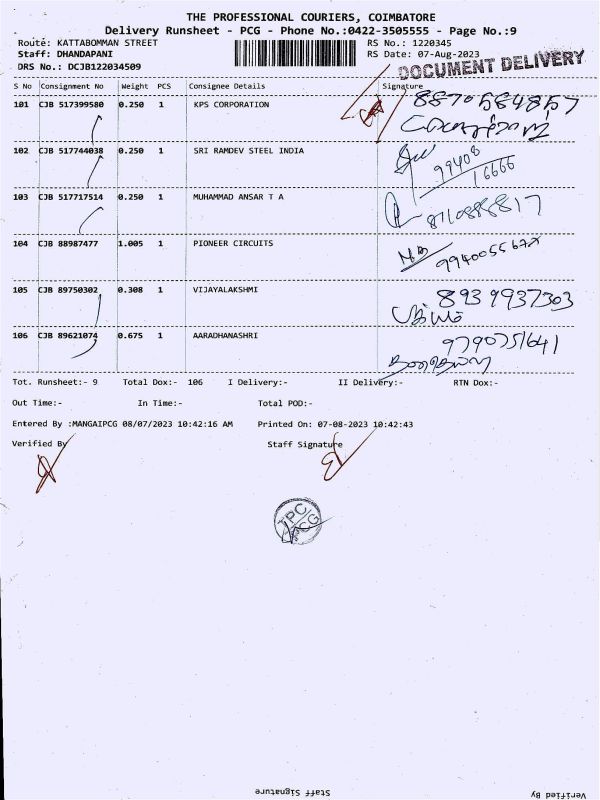 THE PROFESSIONAL COURIERS, COIMBATORE
Delivery Runsheet - PCG - Phone No.:0422-3505555 - Page No.:9
Route: KATTABOMMAN STREET
RS No.: 1220345
Staff: DHANDAPANI
RS Date: 07-Aug-2023
DRS No.: DCJB122034509
DOCUMENT DELIVERY
S No Consignment No Weight PCS Consignee Details Signature
101 CJB 517399580 0.250 1 KPS CORPORATION 8870584857
102 CJB 517744038 0.250 1 SRI RAMDEV STEEL INDIA 99408
16666
103 CJB 517717514 0.250 1 MUHAMMAD ANSAR T A
104 CJB 88987477 1.005 1 PIONEER CIRCUITS
105 CJB 89750302 0.308 1 VIJAYALAKSHMI 8939937303
106 CJB 89621074 0.675 1 AARADHANASHRI 9790751641
Tot. Runsheet:- 9 Total Dox:- 106 I Delivery:- II Delivery:- RTN Dox:-
Out Time:- In Time:- Total POD:-
Entered By :MANGAIPCG 08/07/2023 10:42:16 AM Printed On: 07-08-2023 10:42:43
Verified By Staff Signature
TPC
PCG
Staff Signature Verified By